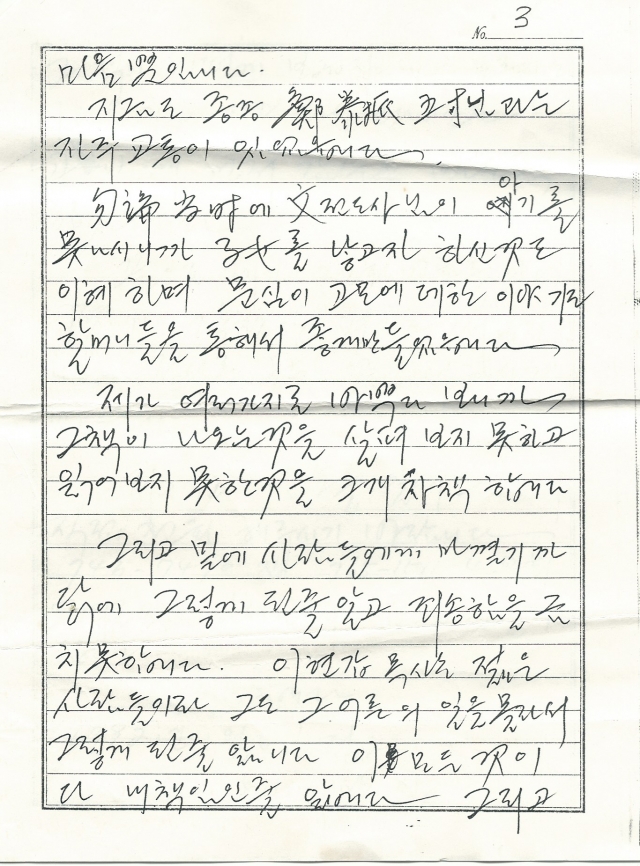 No. 3
마음 뿐입니다.
지금도 종종 鄭 장로님과는
자주 교통이 있었습니다.
勿論 当時에 文전도사님의 아기를
못나시니까 子女를 낳고자 하신것도
이해 하며 문심이 고모에 대한 이야기도
할머니들을 통해서 좋게만 들었습니다
제가 여러가지로 바쁘다 보니까
그책이 나오는것을 살펴 보지 못하고
읽어보지 못한것을 크게 자책 합니다
그리고 밑에 사람들에게 맡겼기 까
닭에 그렇게 된줄 알고 죄송함을 금
치 못합니다. 이현갑 목사는 젊은
사람들이라 그도 그 어른의 일을 몰라서
그렇게 된줄 압니다 이 모든 것이
다 내책임인줄 압니다 그리고